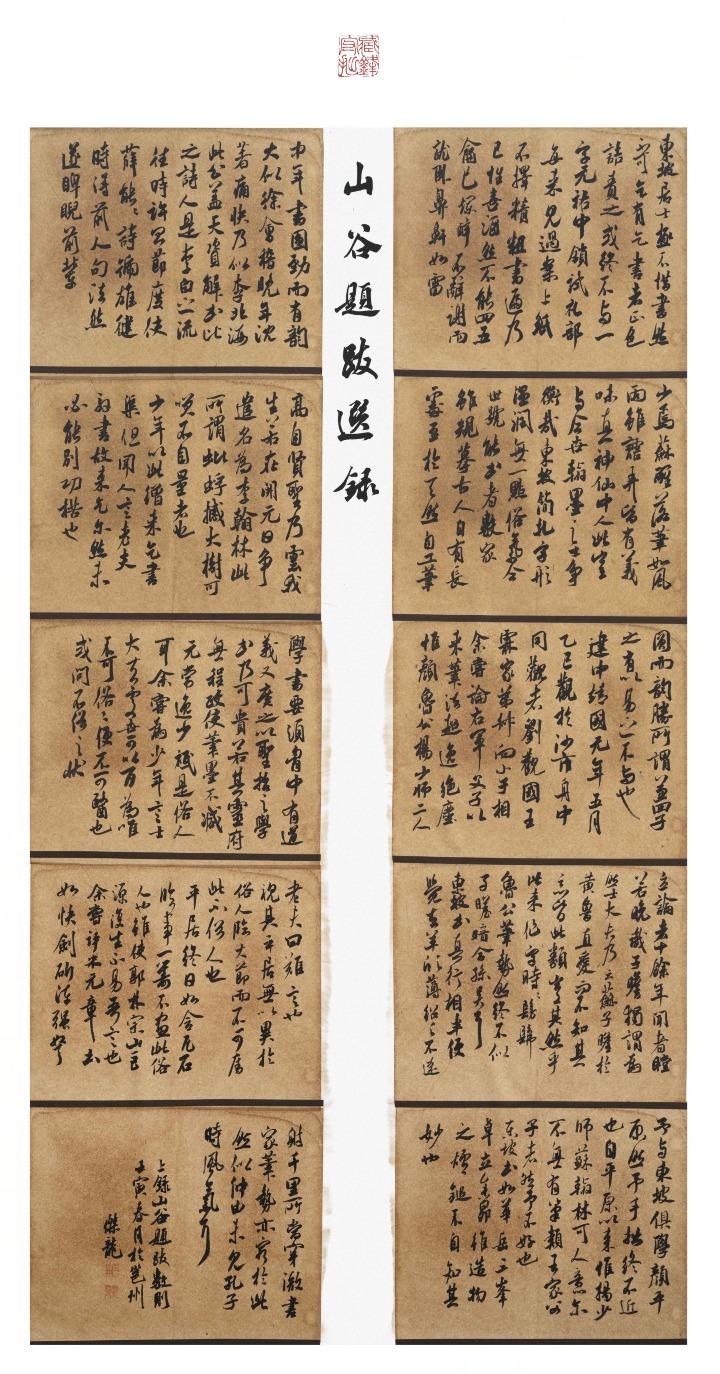 山谷題跋選錄
東坡居士極不惜書然
不可乞有乞書者正色
詰責之或終不與一
字元祐中鎖試礼部
每來見過案上紙
不擇精粗書遍乃
已性喜酒然不能四五
龠已爛醉不辭謝而
就臥鼻鼾如雷
少焉蘇醒落筆如風
雨雖謔弄皆有義
味真神仙中人此豈
與今世翰墨之士爭
衡哉東坡簡札字形
溫潤無一點俗氣今
世號能書者數家
雖規摹古人自有長
處至於天然自工筆
圓而韻勝所謂兼四子
之有以易之不與也
建中靖國元年五月
乙巳觀於沙市舟中
同觀者劉觀國王
霖家弟叔向小子相
余嘗論右軍父子以
來筆法超逸絕塵
惟顏魯公楊少師二人
立論者十餘年聞者瞠
若晚識子瞻獨謂為
然士大夫乃云蘇子瞻於
黃魯直愛而不知其
惡皆此類豈其然乎
比來作字時時髣髴
魯公筆勢然終不似
子瞻暗合孫吳耳
東坡書真行相半便
覺去羊欣薄紹之不遠
予與東坡俱學顏平
原然予手拙終不近
也自平原以來惟楊少
師蘇翰林可人意爾
不無有筆類王家父
子者然予不好也
東坡書如華岳三峯
卓立參昴雖造物
之爐錘不自知其
妙也
中年書圓勁而有韻
大似徐會稽晚年沈
著痛快乃似李北海
此公蓋天資解書比
之詩人是李白之流
往時許昌節度使
薛能能詩號雄健
時得前人句法然
遂睥睨前輩
高自賢聖乃云我
生若在開元日爭
遣名為李翰林此
所謂蚍蜉撼大樹可
笑不自量者也
少年以此繒來乞書
渠但聞人言老夫
解書故來乞尔然未
必能別功楛也
學書要須胸中有道
義又廣之以聖哲之學
書乃可貴若其靈府
無程政使筆墨不減
元常逸少祇是俗人
耳余嘗為少年言士
大夫處世可以百為唯
不可俗俗便不可醫也
或問不俗之狀
老夫曰難言也
視其平居無以異於
俗人臨大節而不可奪
此不俗人也
平居終日如含瓦石
臨事一籌不畫此俗
人也雖使郭林宗山巨
源復生不易吾言也
余嘗評米元章書
如快劍斫陣強弩
射千里所當穿澈書
家筆勢亦窮於此
然似仲由未見孔子
時風氣耳
上錄山谷題跋數則
壬寅春月於邕州
傑龍